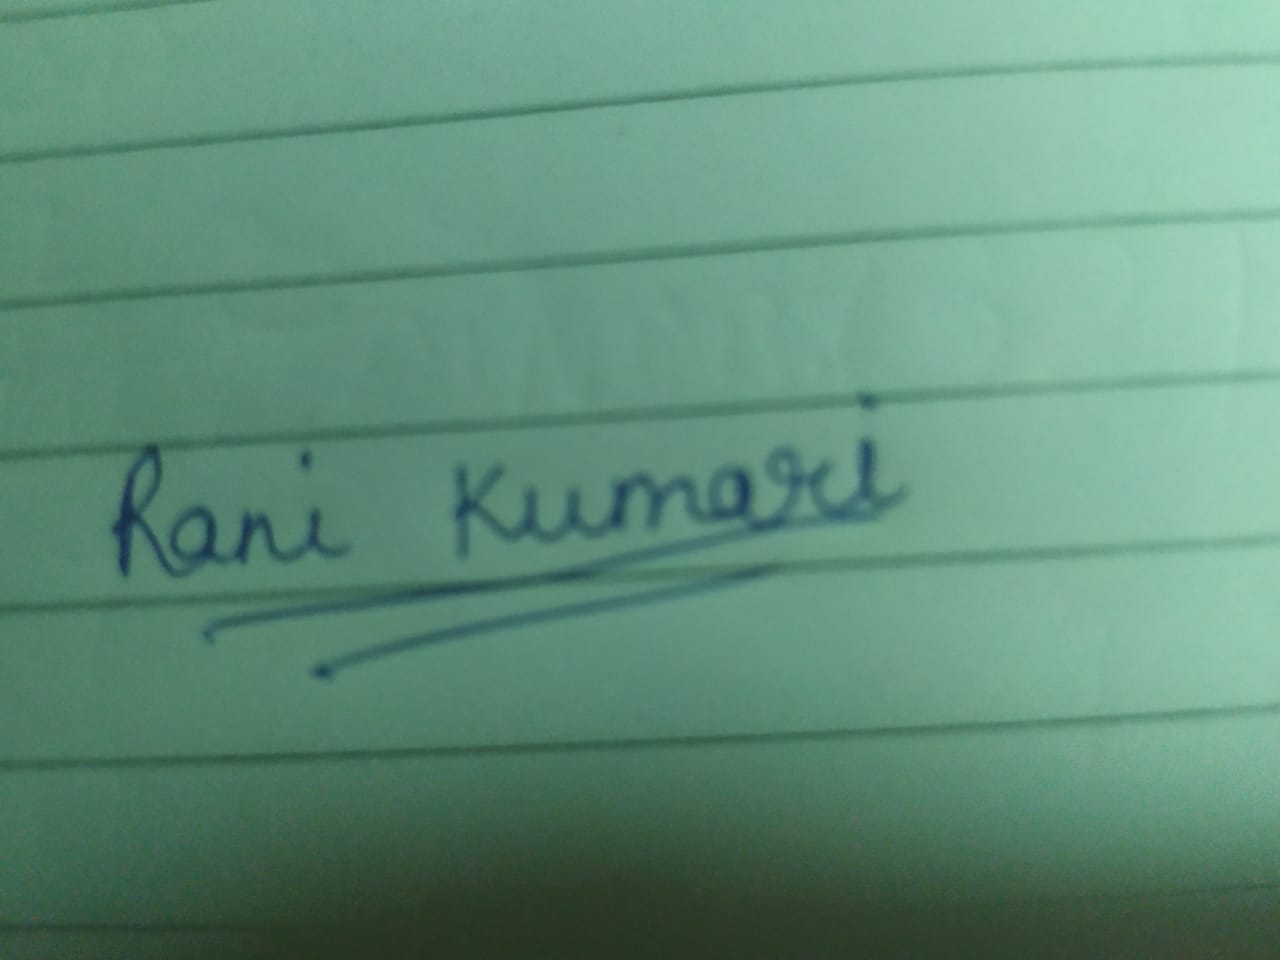 Rani Kumari